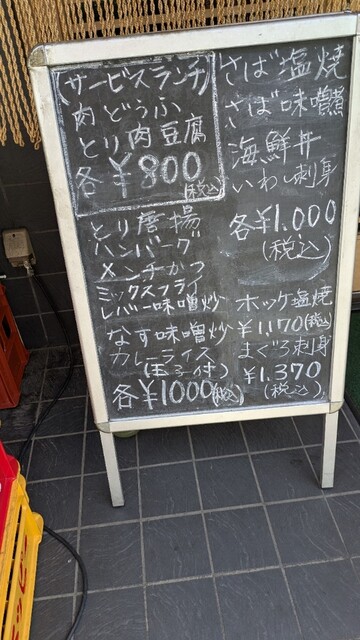 (サービスランチ)
肉どうふ
とり肉豆腐
各¥800
(税込)
とり唐揚
ハンバーグ
メンチかつ
ミックスフライ
レバー味噌炒
なす味噌炒
カレーライス
(玉子付)
各¥1000(税込)
さば塩焼
さば味噌煮
海鮮丼
いわし刺身
各¥1.000
(税込)
ホッケ塩焼
¥1,170(税込)
まぐろ刺身
¥1.370
(税込)